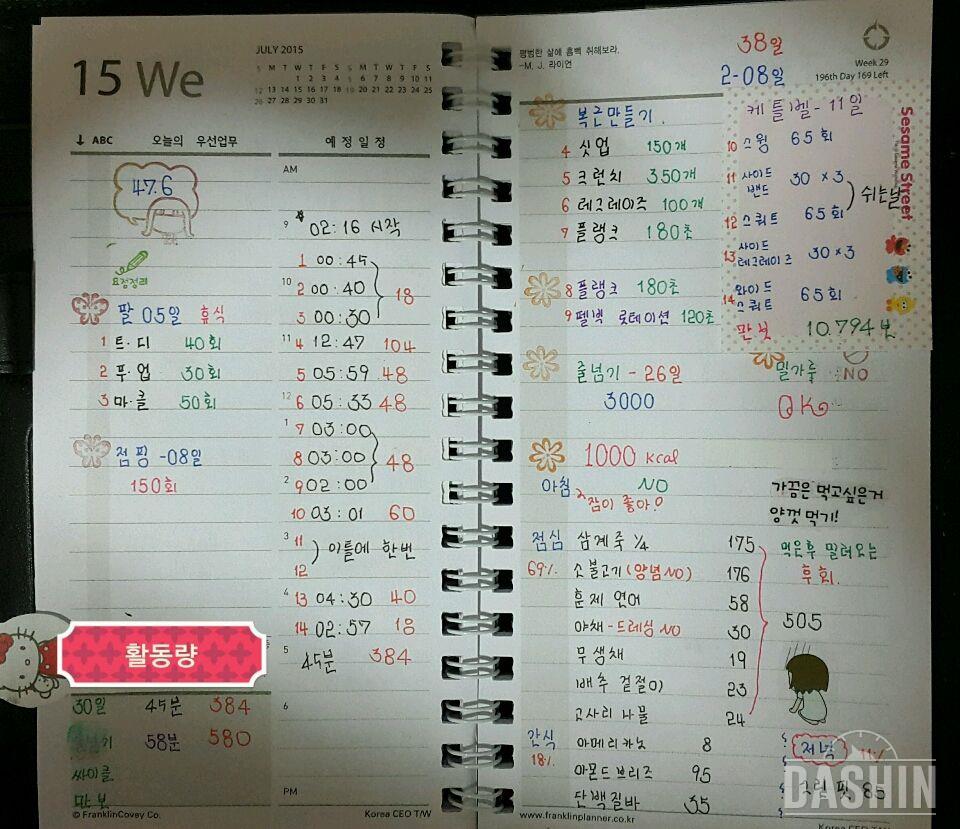 15 We
JULY 2015
S M T W T F S S M T W T F S
1 2 3 4 5 6 7 8 9 10 11
12 13 14 15 16 17 18 19 20 21 22 23 24 25
26 27 28 29 30 31
↓ ABC 오늘의 우선업무
47.6
요점정리
팔 05일 휴식
1 트·디 40회
2 푸·업 30회
3 마·클 50회
점핑 -08일
150회
활동량
30일 45분 384
58분 580
싸이클
만보
© FranklinCovey Co.
예정일정
AM
9 02:16 시작
1 00:45
10 2 00:40 18
3 00:30
11 4 12:47 104
5 05:59 48
12 6 05:33 48
1 7 03:00
8 03:00 48
2 9 02:00
10 03:01 60
3 11
12 이틀에 한번
4 13 04:30 40
14 02:57 18
5 45분 384
6
PM
Korea CEO T/W
평범한 삶에 흠뻑 취해보라.
-M. J. 라이언
38일
2-08일
Week 29
196th Day 169 Left
복근만들기
4 싯업 150개
5 크런치 350개
6 레그레이즈 100개
7 플랭크 180초
8 플랭크 180초
9 펠빅 로테이션 120초
케틀벨 - 11일
10 스윙 65회
11 사이드 밴드 30 ×3
12 스쿼트 65회
쉬는날
13 사이드 레그레이즈 30×3
14 와이드 스쿼트 65회
만보 10.794보
Sesame Street
줄넘기 - 26일
3000
밀가루 NO
OK
1000 kcal
아침 NO
잠이 좋아!
가끔은 먹고싶은거
양껏 먹기!
먹은후 밀려오는
후회.
점심 삼계죽 ¼ 175
69% 소불고기 (양념NO) 176
훈제 연어 58
야채 - 드레싱 NO 30
무생채 19
배추 겉절이 23
고사리 나물 24
505
간식 아메리카노 8
18% 아몬드브리즈 95
단백질바 35
저녁
85
DASHIN
www.franklinplanner.co.kr
Korea CEO T/W